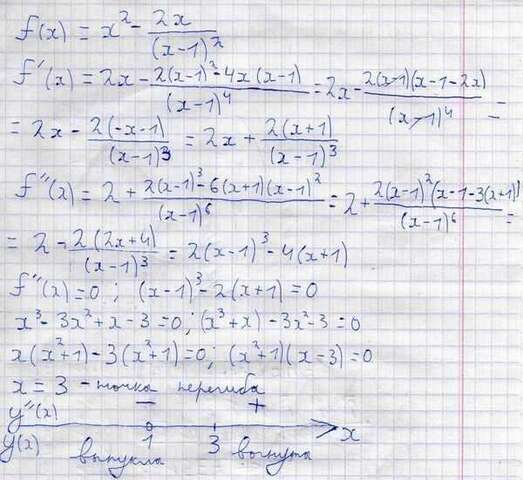 f(x) = x² - 2x/(x-1)²
f'(x) = 2x - (2(x-1)² - 4x(x-1))/(x-1)⁴ = 2x - (2(x-1)(x-1-2x))/(x-1)⁴ =
= 2x - 2(-x-1)/(x-1)³ = 2x + 2(x+1)/(x-1)³
f''(x) = 2 + (2(x-1)³ - 6(x+1)(x-1)²)/(x-1)⁶ = 2 + (2(x-1)²(x-1-3(x+1)))/(x-1)⁶ =
= 2 - 2(2x+4)/(x-1)³ = 2(x-1)³ - 4(x+1)
f''(x) = 0 ; (x-1)³ - 2(x+1) = 0
x³ - 3x² + x - 3 = 0 ; (x³ + x) - 3x² - 3 = 0
x(x²+1) - 3(x²+1) = 0 ; (x²+1)(x-3) = 0
x = 3 - точка перегиба
y''(x) - +
1 3 x
y(x) выпукла вогнута